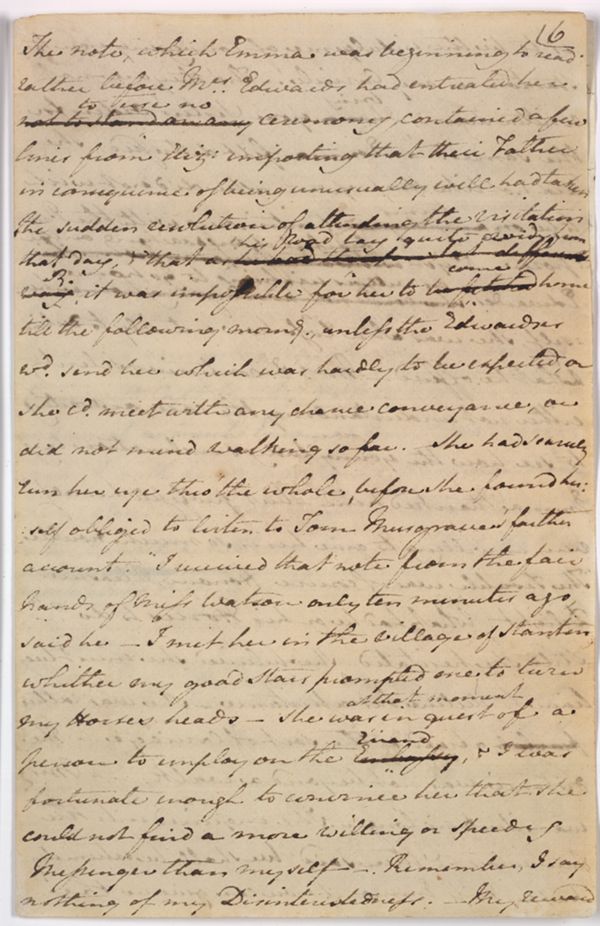 16
The note, which Emma was beginning to read
rather before Mrs. Edwards had entreated her
to use no
not to stand on any ceremony, contained a few
lines from Eliz: importing that their Father
in consequence of being unusually well had taken
the sudden resolution of attending the visitation
that day, & that as
his Road lay quite wide from
R.
come
it was impossible for her to be fetched home
till the following morng., unless the Edwardses
wd. send her which was hardly to be expected, or
she cd. meet with any chance conveyance, or
did not mind walking so far. — She had scarcely
run her eye thro' the whole, before she found her:
:self obliged to listen to Tom Musgrave's farther
account. "I received that note from the fair
hands of Miss Watson only ten minutes ago,
said he — I met her in the village of Stanton,
whither my good Stars prompted me to turn
at that moment
my Horses heads — she was in quest of a
Errand
person to employ on the Embassy, & I was
fortunate enough to convince her that she
could not find a more willing or speedy
Messenger than myself —. Remember, I say
nothing of my Disinterestedness. — My reward